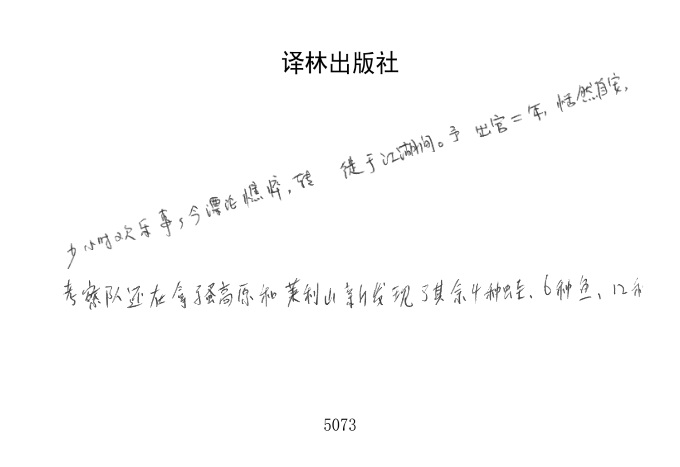 译林出版社
少小时欢乐事,今漂沦憔悴,转徙于江湖间。予出官二年,恬然自安,
考察队还在拿骚高原和莱利山新发现了其余4种蛙、6种鱼、12